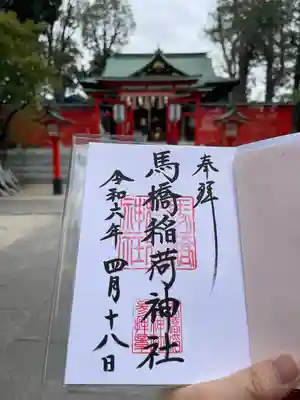 奉拝
馬橋稲荷神社
令和六年 四月十八日